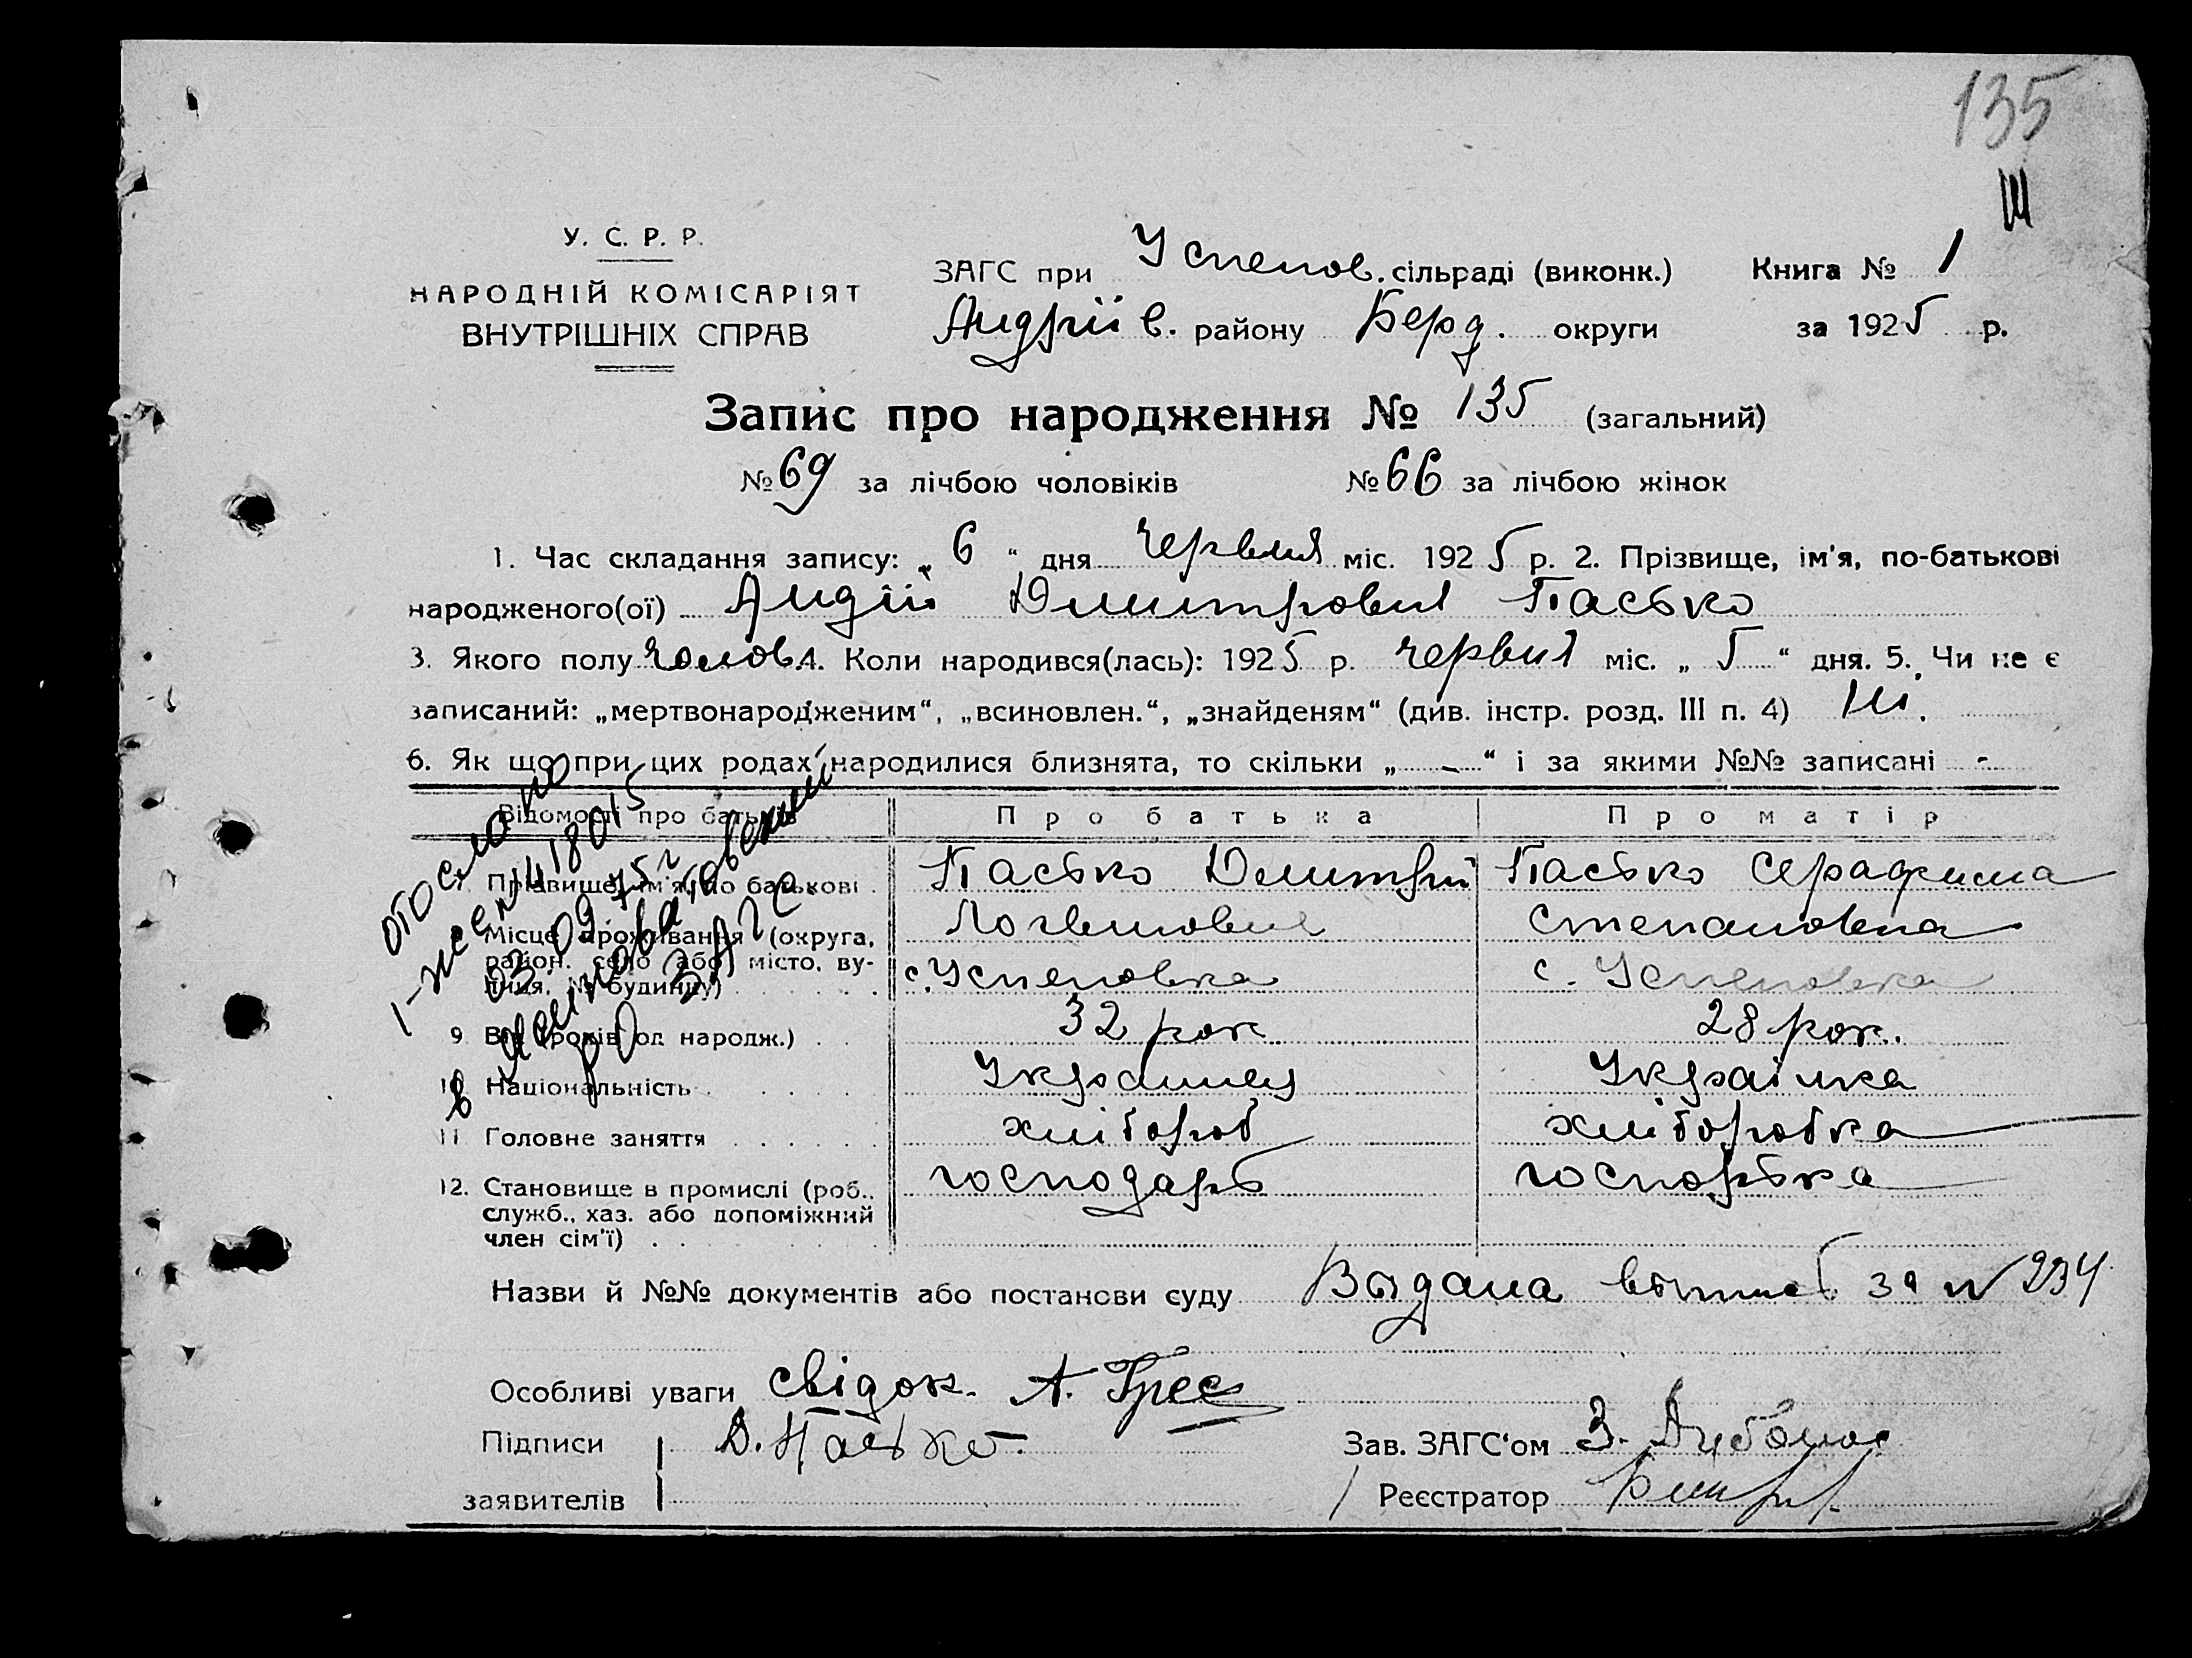 135
Ш
У. С. Р. Р.
НАРОДНІЙ КОМІСАРІЯТ
ВНУТРІШНІХ СПРАВ
ЗАГС при Успенов. сільраді (виконк.) Книга № 1
Андріїв. району Берд. округи за 1925 р.
Запис про народження № 135 (загальний)
№ 69 за лічбою чоловіків № 66 за лічбою жінок
1. Час складання запису: „ 6 “ дня червня міс. 1925 р. 2. Прізвище, ім'я, по-батькові
народженого(ої) Андрій Дмитрович Пасько
3. Якого полу чолов. 4. Коли народився(лась): 1925 р. червня міс. „ 5 “ дня. 5. Чи не є
записаний: „мертвонародженим“, „всиновлен.“, „знайденям“ (див. інстр. розд. III п. 4) Ні.
6. Як що при цих родах народилися близнята, то скільки „ - “ і за якими №№ записані -
Відомості про батьків Про батька Про матір
7. Прізвище, ім'я, по батькові Пасько Дмитрий Пасько Серафима
Логвинович Степановна
8. Місце проживання (округа, район, село або місто, вулиця, № будинку) с. Успеновка с. Успеновка
9 Вік (років од народж.) 32 рок 28 рок.
10 Національність Украинец Українка
11 Головне заняття хлібороб хліборобка
12. Становище в промислі (роб., господарь
служб., хаз. або допоміжний
член сім'ї)
Назви й №№ документів або постанови суду Выдана за № 234
Особливі уваги свідок. А. Грес
Підписи Д. Пасько.
заявителів
Зав. ЗАГС'ом З.
Реєстратор
отослано по
1-же № 418015
03.09.75г
в
РО ЗАГС